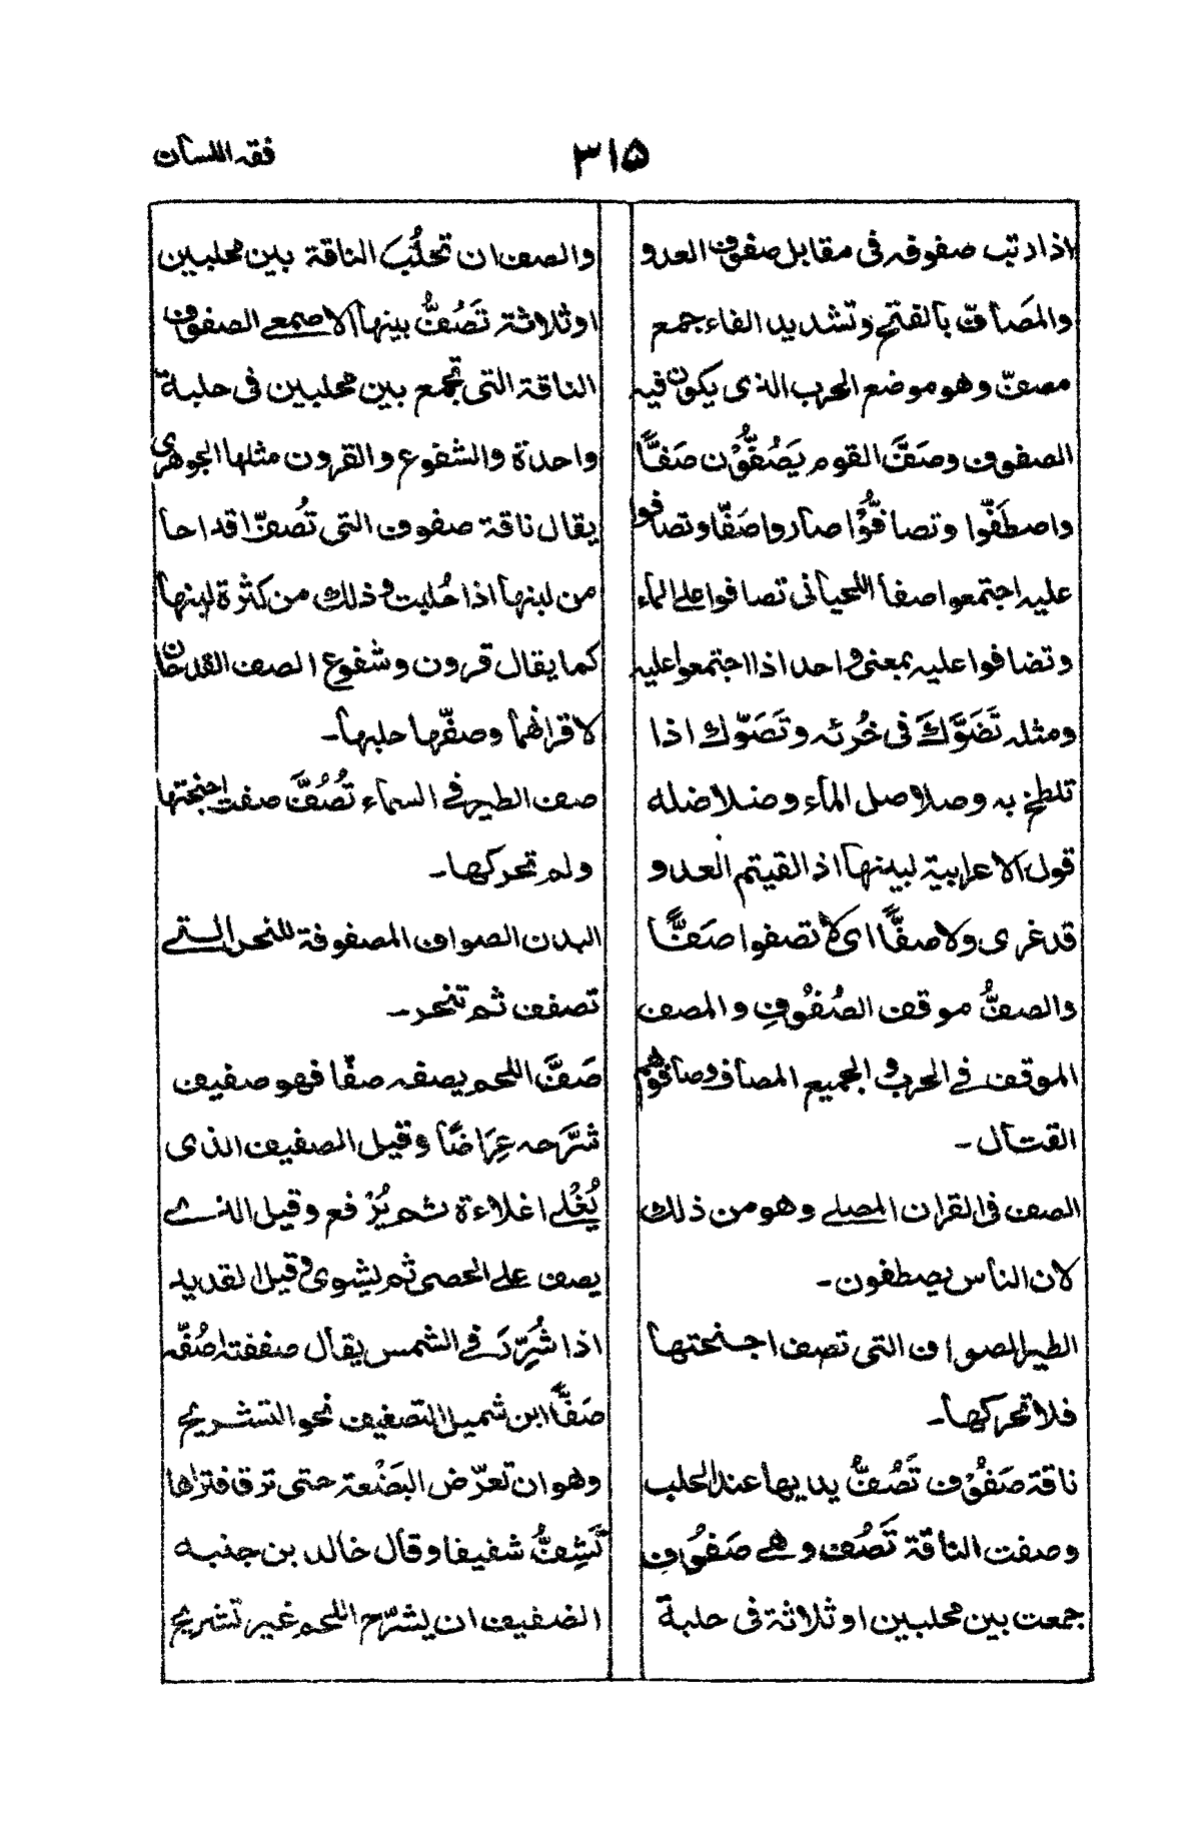 فقه اللسان
۳۱۵
اذا رتب صفوفه فى مقابل صفوف العدو
والمَصَاف بالفتح وتشديد الفاء جمع
مصفّ وهو موضع الحرب الذى يكون فيه
الصفوف وصَفَّ القوم يَصُفُّوْن صَفًّا
واصطَفّوا وتصافُّوْا صاروا صَفًّا وتصافوا
عليه اجتمعوا صفا اللحيانى تصافوا على الماء
وتضافوا عليه بمعنى واحد اذا اجتمعوا عليه
ومثله تَضَوَّكَ فى خُرئه وتَصَوّك اذا
تلطخ به وصلاصل الماء وضلاضله
قول الاعرابية لبينها اذا لقيتم العدو
قد غرى ولا صفًّا اى لا تصفوا صَفًّا
والصفُّ موقف الصُفُوفِ والمصف
الموقف فى الحرب والجميع المصاف وصافوهم
القتال ـ
الصف فى القران المصلى وهو من ذلك
لان الناس يصطفون ـ
الطير الصواف التى تصف اجنحتها
فلا تحركها ـ
ناقة صَفُوْف تَصُفُّ يديها عند الحلب
وصفت الناقة تَصُف وهى صَفُوف
جمعت بين محلبين او ثلاثة فى حلبة
والصف ان تحلُبَ الناقة بين محلبين
او ثلاثة تَصُفُّ بينها الاصمعى الصفوف
الناقة التى تجمع بين محلبين فى حلبة
واحدة والشفوع والقرون مثلها الجوهرى
يقال ناقة صفوف التى تُصفّ اقداحا
من لبنها اذا حُلبت وذلك من كثرة لبنها
كما يقال قرون وشفوع الصف القدحان
لاقرانهما وصفّها حلبها ـ
صف الطير فى السماء تُصُفَّ صفت اجنحتها
ولم تحركها ـ
البدن الصواف المصفوفة للنحر التى
تصفف ثم تنحر ـ
صَفَّ اللحم يصفه صفّا فهو صفيف
شَرَّحه عِرَاضًا وقيل الصفيف الذى
يُغْلى اغلاءة ثم يُرْفع وقيل الذى
يصف على الحصى ثم يشوى وقيل القديد
اذا شُرِّرَ فى الشمس يقال صففته اصُفّه
صَفًّا ابن شميل التصفيف نحو التشريح
وهو ان تعرّض البَضْعة حتى ترق فتراها
تَشِفُّ شفيفا وقال خالد بن جنبه
الصفيف ان يشرّح اللحم غير تشريح